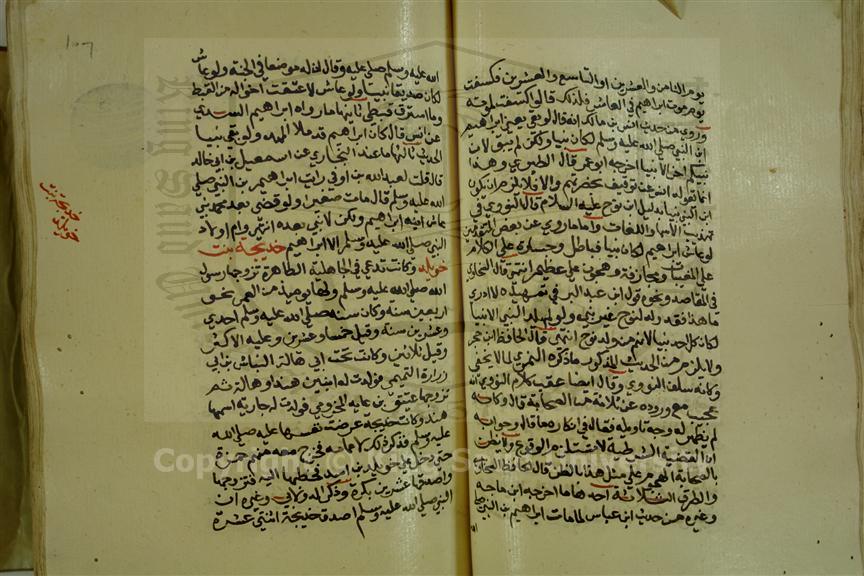 يوم الثامن والعشرين او التاسع والعشرين فكسفت
يوم موت ابراهيم في العاشر فلذلك قالوا كسفت لموته
وروي من حديث انس بن مالك انه قال لو بقي يعني ابراهيم
ابن النبي صلى الله عليه وسلم لكان نبيا ولكن لم يبق لان
نبيكم اخر الانبيا اخرجه ابو عمر قال الطبري وهذا
انما يقوله انس عن توقيف يخص ابراهيم والا فلا يلزم ان يكون
ابن النبي نبيا بدليل ابن نوح عليه السلام قال النووي في
تهذيب الاسما واللغات واما ما روي عن بعض المتقدمين
لو عاش ابراهيم لكان نبيا فباطل وجسارة على الكلام
على المغيبات ومجازفة وهجوم على عظيم انتهى قال السخاوي
في المقاصد ونحوه قول ابن عبد البر في تمهيده لا ادري
ما هذا فقد ولد لنوح غير نبي ولو لم يلد النبي الا نبيا
لكان كل احد نبيا لانهم من ولد نوح انتهى قال الحافظ ابن حجر
ولا يلزم من الحديث المذكور ما ذكره النمري لما لا يخفى
وكانه سلف النووي وقال ايضا عقب كلام النووي انه
عجيب مع وروده عن ثلاثة من الصحابة قال وكانه
لم يظهر له وجه تاويله فقال في انكاره ما قال وجوابه
ان القضية الشرطية لا تستلزم الوقوع ولا يظن
بالصحابة الهجوم على مثل هذا بالظن قال الحافظ السخاوي
والطرق الثلاثة احدها ما اخرجه ابن ماجه
وغيره من حديث ابن عباس لما مات ابراهيم بن النبي صلى
الله عليه وسلم صلى عليه وقال ان له مرضعا في الجنة ولو عاش
لكان صديقا نبيا ولو عاش لاعتقت اخواله من القبط
وما استرق قبطي ثانيها ما رواه ابراهيم السدي
عن انس قال كان ابراهيم قد ملا المهد ولو بقي نبيا
الحديث ثالثها ما عند البخاري عن اسمعيل بن ابي خالد
قال قلت لعبد الله بن ابي اوفى رايت ابراهيم بن النبي صلى
الله عليه وسلم قال مات صغيرا ولو قضي بعد محمد نبي
عاش ابنه ابراهيم ولكن لا نبي بعده انتهى وام اولاد
النبي صلى الله عليه وسلم الا ابراهيم خديجة بنت
خويلد وكانت تدعى في الجاهلية الطاهرة تزوجها رسول
الله صلى الله عليه وسلم ولها يومئذ من العمر نحو
اربعين سنة وكان سنه صلى الله عليه وسلم احدى
وعشرين سنة وقيل خمسا وعشرين وعليه الاكثر
وقيل ثلاثين وكانت تحت ابي هالة النباش بن ابي
زرارة التميمي فولدت له ابنين هندا وهالة ثم
تزوجها عتيق بن عايد المخزومي فولدت له جارية اسمها
هند وكانت خديجة عرضت نفسها عليه صلى الله
عليه وسلم فذكر ذلك لاعمامه فخرج معه منهم حمزة
حتى دخل على خويلد بن اسد فخطبها اليه فتزوجها
واصدقها عشرين بكرة وذكر الدولابي وغيره ان
النبي صلى الله عليه وسلم اصدق خديجة اثنتي عشرة
خديجة بنت
خويلد